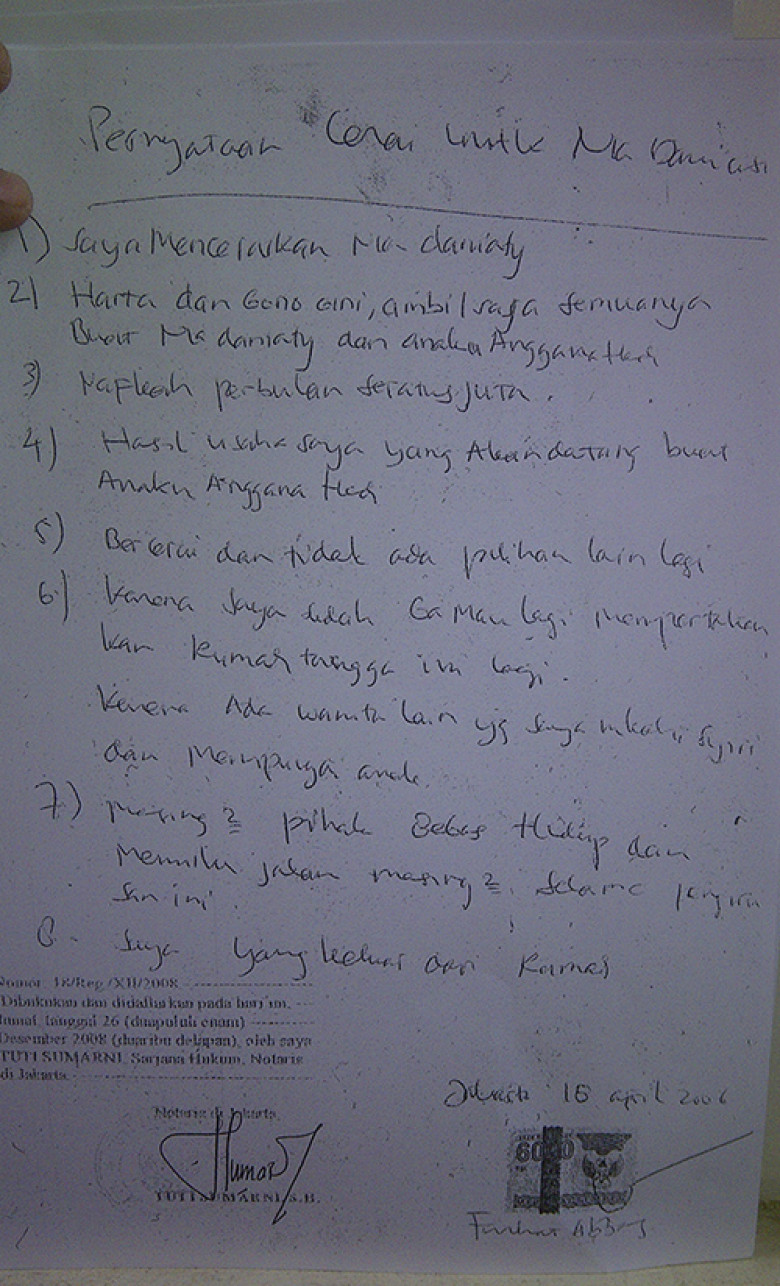 Pernyataan Cerai untuk Nia Daniati
1) Saya Menceraikan Nia daniaty
2) Harta dan Gono Gini, ambil saja semuanya
Buat Nia daniaty dan anaku Anggana Hadi
3) Nafkah perbulan seratus JUTA.
4) Hasil usaha saya yang Akan datang buat
Anaku Anggana Hadi
5) Bercerai dan tidak ada pilihan lain lagi
6) Karena saya sudah Ga Mau lagi mempertahan
kan Rumah tangga ini lagi.
Karena Ada wanita lain yg saya nikahi Syiri
dan Mempunyai anak
7) Masing2 pihak Bebas Hidup dan
Memilih jalan masing2. Selama
8. Saya yang keluar dari Rumah
Nomor 18/Reg /XII/2008
Dibukukan dan didaftarkan pada hari ini,
Jumat, tanggal 26 (duapuluh enam)
Desember 2008 (duaribu delapan), oleh saya
TUTI SUMARNI, Sarjana Hukum, Notaris
di Jakarta
Jakarta 15 april 2006
Notaris di Jakarta,
6000
TUTI SUMARNI, S.H.
Farhat Abbas